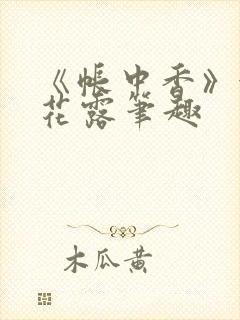 《帐中香》
花露笔趣
木瓜黄